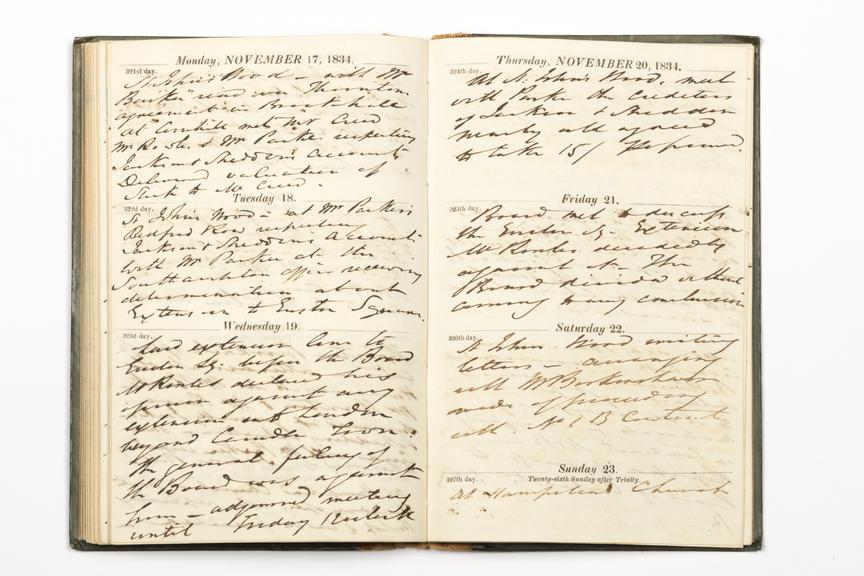 Monday, NOVEMBER 17, 1834.
321st day.
St John's Wood – with Mr
agreement
at Cornhill met Mr Creed
& Mr Parker respecting
Jackson & Sheddens accounts
Delivered valuation of
to Mr Creed.
Tuesday 18.
322d day.
St John's Wood – at Mr Parker's
Bedford Row respecting
Jackson & Sheddens Account
with Mr Parker at the
Southampton office receiving
determination about
Extension to Euston Square.
Wednesday 19.
323d day.
Laid extension line to
Euston Sq. before the Board
declared his
opinion against any
extension into London
beyond Camden Town.
the general feeling of
the Board was against
him – adjourned meeting
until Friday 12 oclock
Thursday, NOVEMBER 20, 1834.
324th day.
At St. John's Wood, met
with Parker the creditors
of Jackson & Shedden
nearly all agreed
to take 15/
Friday 21.
325th day.
Board met to discuss
the Euston Sq. Extension
decidedly
against it – The
Board divided without
coming to any conclusion
Saturday 22.
326th day.
St John's Wood writing
letters – arranging
with Mr
mode of proceeding
with No 1 B Contract
Sunday 23.
327th day.
Twenty-sixth Sunday after Trinity.
At Hampstead Church